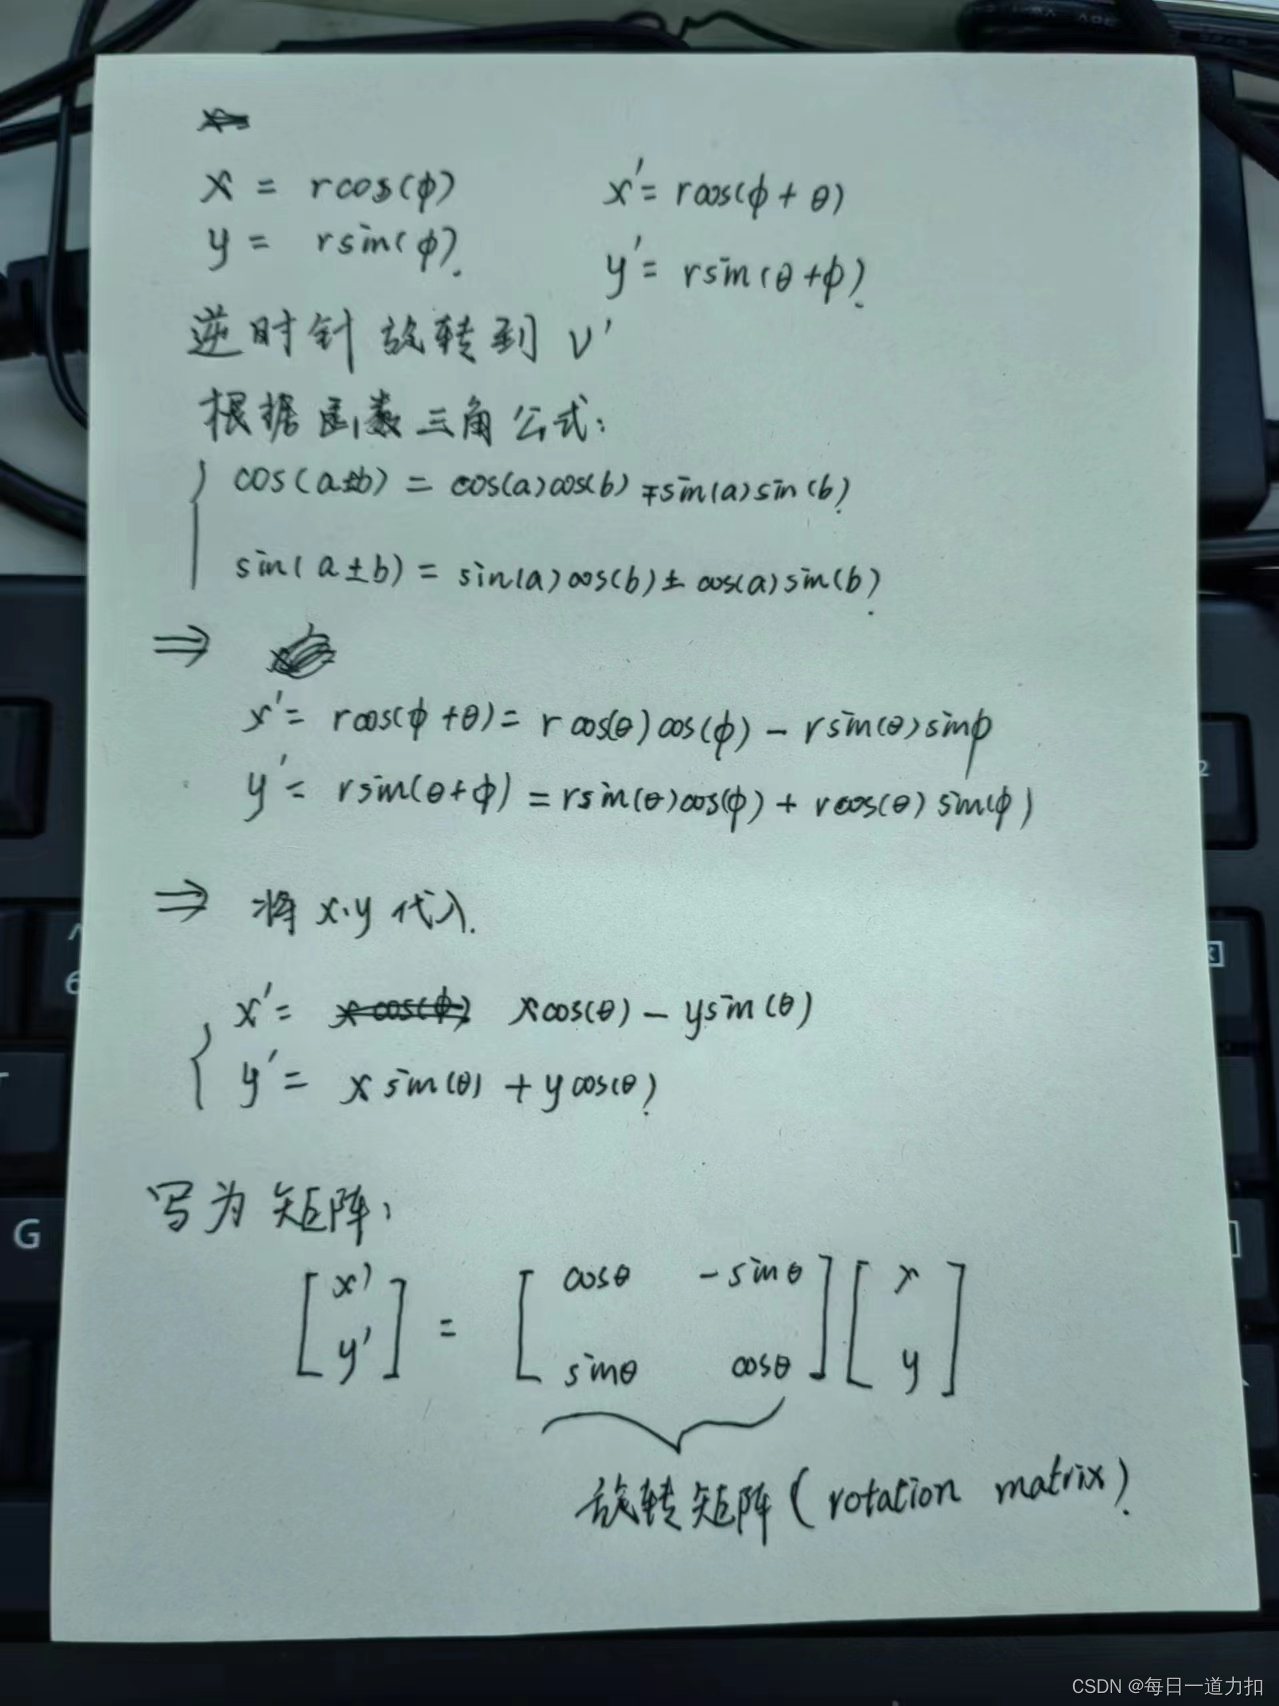 x = rcos(ϕ)    x' = rcos(ϕ + θ)
y = rsin(ϕ).    y' = rsin(θ+ϕ).
逆时针旋转到 v'
根据函数三角公式:
cos(a±b) = cos(a)cos(b) ∓ sin(a)sin(b).
sin(a±b) = sin(a)cos(b) ± cos(a)sin(b).
⇒
x' = rcos(ϕ+θ) = rcos(θ)cos(ϕ) - rsin(θ)sinϕ
y' = rsin(θ+ϕ) = rsin(θ)cos(ϕ) + rcos(θ)sin(ϕ)
⇒ 将 x.y 代入.
x' = xcos(θ) - ysin(θ)
y' = xsin(θ) + ycos(θ).
写为矩阵:
[x' y'] = [cosθ -sinθ
sinθ cosθ] [x y]
旋转矩阵(rotation matrix).
2
6
G
CSDN @每日一道力扣